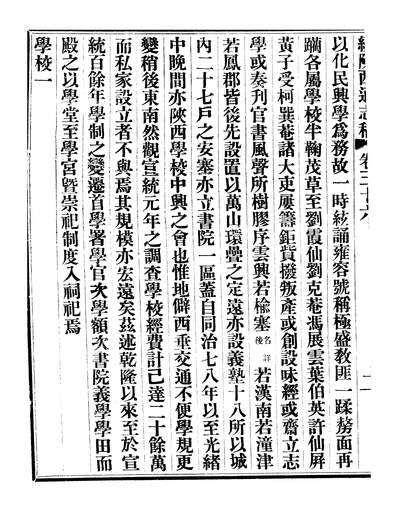 續陝西通志稿 卷三十六
以化民興學爲務故一時絃誦雍容號稱極盛敎匪一蹂嫠面再
躪各屬學校半鞠茂草至劉霞仙劉克菴馮展雲葉伯英許仙屛
黃子受柯巽菴諸大吏屢籌鉅貲撥叛產或創設味經或齋立志
學或奏刋官書風聲所樹膠序雲興若楡塞名詳後若漢南若潼津
若鳳郡皆後先設置以萬山環疊之定遠亦設義塾十八所以城
內二十七戶之安塞亦立書院一區蓋自同治七八年以至光緖
中晚間亦陝西學校中興之會也惟地僻西垂交通不便學規更
變稍後東南然觀宣統元年之調查學校經費計已達二十餘萬
而私家設立者不與焉其規模亦宏遠矣茲述乾隆以來至於宣
統百餘年學制之變遷首學署學官次學額次書院義學學田而
殿之以學堂至學宮曁崇祀制度入祠祀焉
學校一